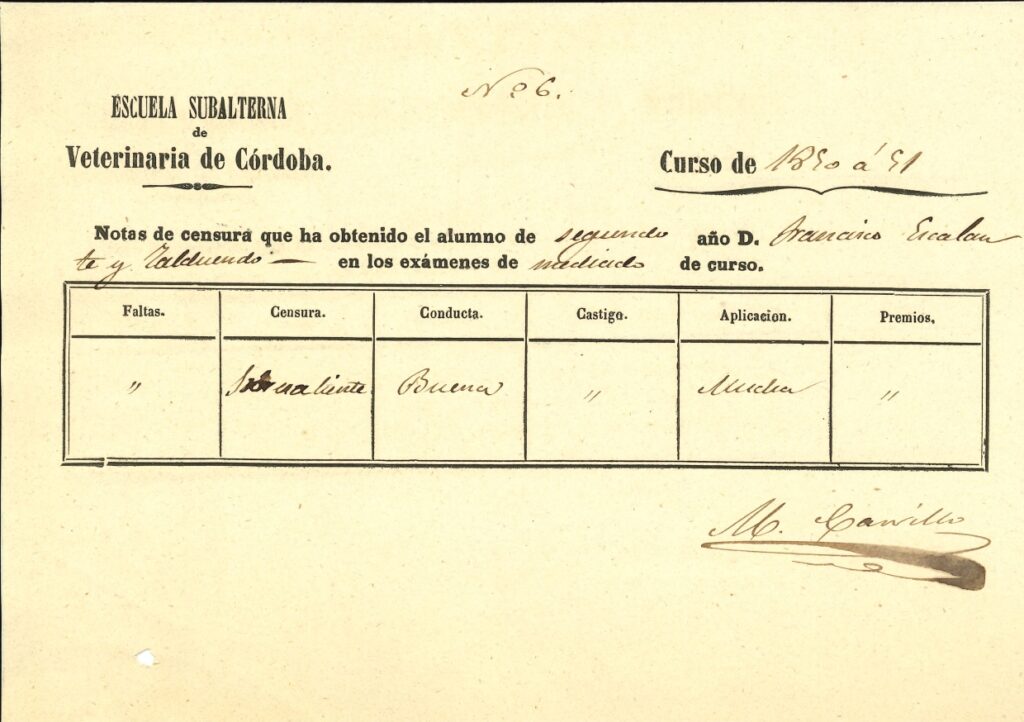 Nº 6.
ESCUELA SUBALTERNA
de
Veterinaria de Córdoba.
Curso de 1850 á 51
Notas de censura que ha obtenido el alumno de segundo año D. Francisco Escalan
te y Zalduendo — en los exámenes de mediado de curso.
Faltas. Censura. Conducta. Castigo. Aplicacion. Premios.
" Sobresaliente Buena " Mucha "
M.